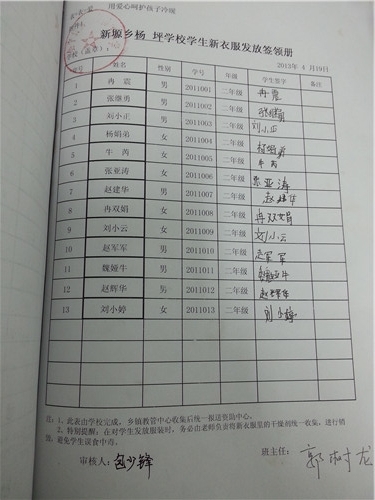 用爱心呵护孩子冷暖
新塬乡杨 坪学校学生新衣服发放签领册
学校（盖章）： 2013年 4 月19日
序号 姓名 性别 学号 年级 学生签字 备注
1 冉霞 男 2011001 二年级 冉霞
2 张继勇 男 2011002 二年级 张继勇
3 刘小正 男 2011003 二年级 刘小正
4 杨娟弟 女 2011004 二年级 杨娟弟
5 牛芮 女 2011005 二年级 牛芮
6 张亚涛 女 2011006 二年级 张亚涛
7 赵建华 男 2011007 二年级 赵建华
8 冉双娟 女 2011008 二年级 冉双娟
9 刘小云 女 2011009 二年级 刘小云
10 赵军军 男 2011010 二年级 赵军军
11 魏娅牛 男 2011011 二年级 魏娅牛
12 赵辉华 男 2011012 二年级 赵辉华
13 刘小婷 女 2011013 二年级 刘小婷
注：1、此表由学校完成，乡镇教管中心收集后统一报送资助中心。
2、特别提醒：在对学生发放服装时，务必由老师负责将新衣服里的干燥剂统一收集、进行销
毁，避免学生误食中毒。
审核人： 包少锋 班主任： 郭树龙